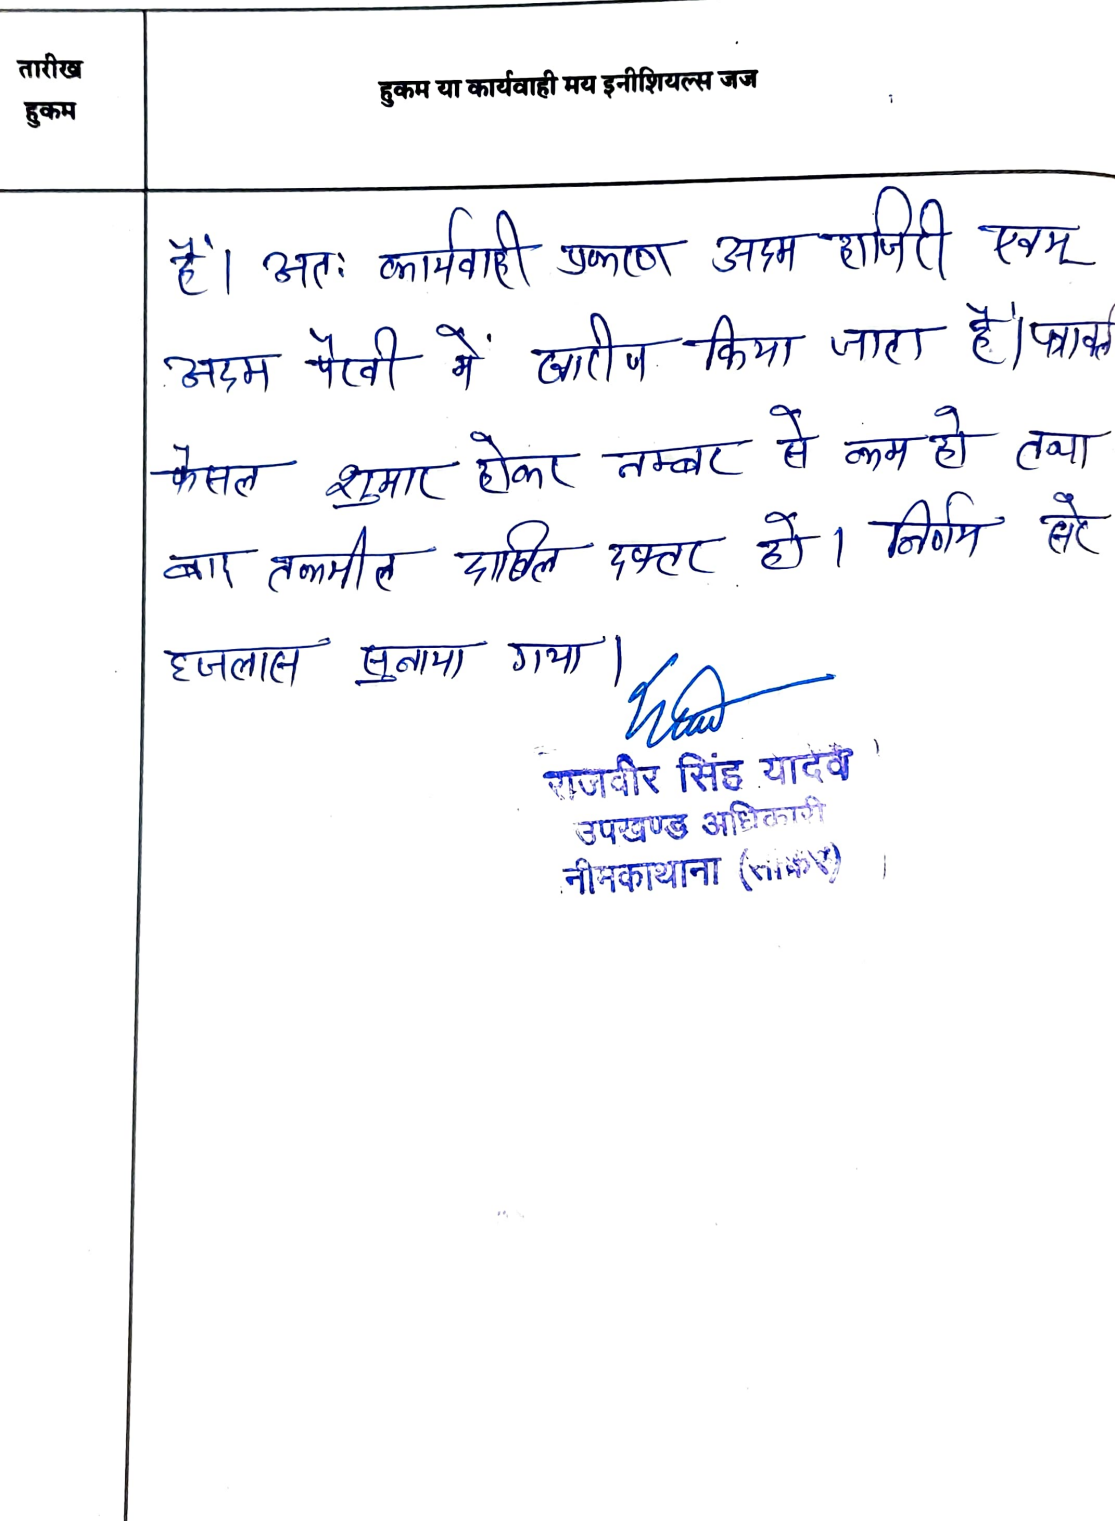 तारीख
हुकम
हुकम या कार्यवाही मय इनीशियल्स जज
हैं। अतः कार्यवाही प्रकरण अदम हाजिरी एवम्
अदम पैरवी में खारीज किया जाता है। पत्रावली
फैसल शुमार होकर नम्बर से कम हो तथा
बाद तकमील दाखिल दफ्तर हों। निर्णय सरे
इजलास सुनाया गया।
राजवीर सिंह यादव
उपखण्ड अधिकारी
नीमकाथाना (सीकर)